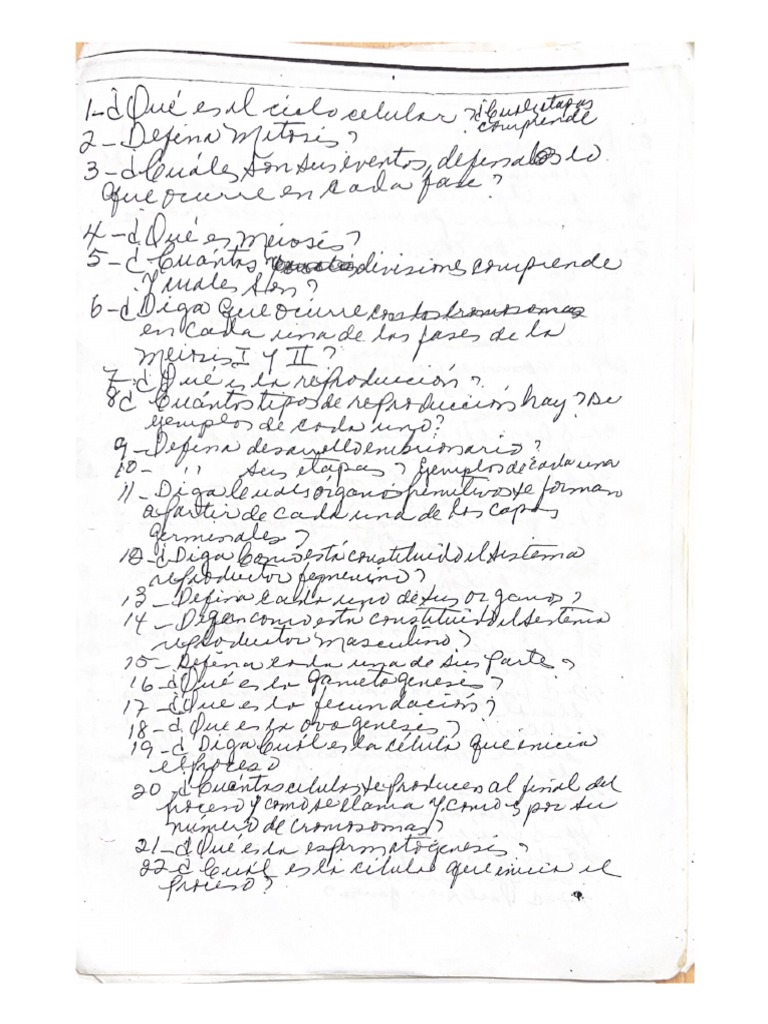 1-¿Qué es el ciclo celular? ¿Cuáles etapas
comprende
2-Defina Mitosis?
3-¿Cuáles son sus eventos, defínalos lo
que ocurre en cada fase?
4-¿Qué es Meiosis?
5-¿Cuántas divisiones comprende
y cuales son?
6-¿Diga que ocurre con los cromosomas
en cada una de las fases de la
Meiosis I y II?
7-¿Qué es la reproducción?
8¿ Cuántos tipos de reproducción hay? De
ejemplos de cada uno?
9-Defina desarrollo embrionario?
10- '' sus etapas? Ejemplos de cada una
11-Diga Cuales órganos primitivos se forman
a partir de cada una de las capas
germinales?
12-¿Diga Como está constituido el sistema
reproductor femenino?
13-Defina Cada uno de sus organos?
14-Digan como esta constituido el sistema
reproductor masculino?
15-Defina cada una de sus parte?
16-¿Qué es la gametogenesis?
17-¿Que es la fecundación?
18-¿Que es la ovogenesis?
19-¿ Diga Cuál es la célula que inicia
el proceso
20-¿Cuántas celulas se producen al final del
proceso y como se llama y como es por su
número de cromosomas?
21-¿Que es la espermatogenesis?
22-¿Cuál es la célula que inicia el
proceso?